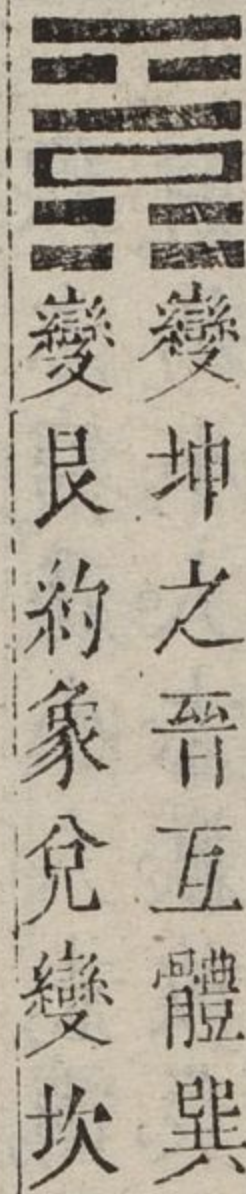 變坤之晉互體巽
變艮約象兌變坎